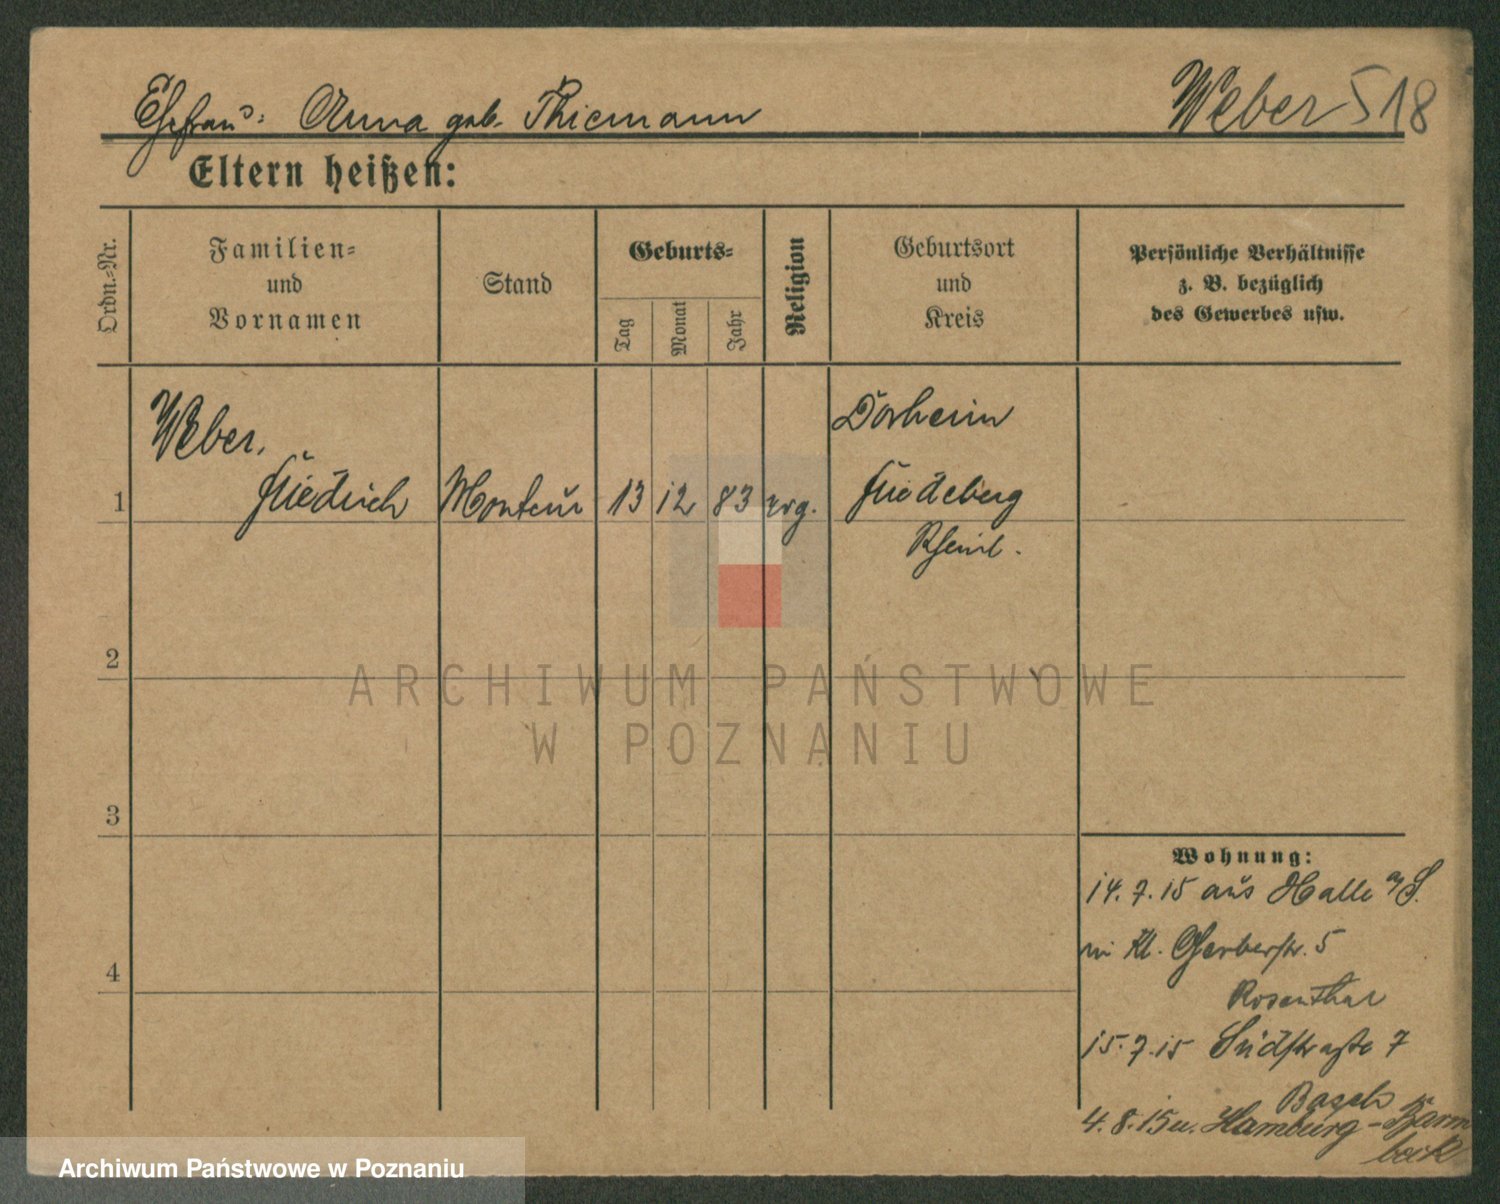 Ehefrau: Anna geb. Thiemann
Weber 518
Eltern heißen:
Ordn.-Nr.
Familien-
und
Vornamen
Stand
Geburts-
Tag
Monat
Jahr
Religion
Geburtsort
und
Kreis
Persönliche Verhältnisse
z. B. bezüglich
des Gewerbes usw.
Weber,
Dorheim
1
Friedrich
Monteur
13
12
83
evg.
Friedeberg
2
3
4
Wohnung:
14. 7. 15 aus Halle a/S.
in Kl. Gerberstr. 5
Rosenthal
15. 7. 15 Südstraße 7
Basch
4. 8. 15 n. Hamburg-Barm
beck
ARCHIWUM PAŃSTWOWE
W POZNANIU
Archiwum Państwowe w Poznaniu